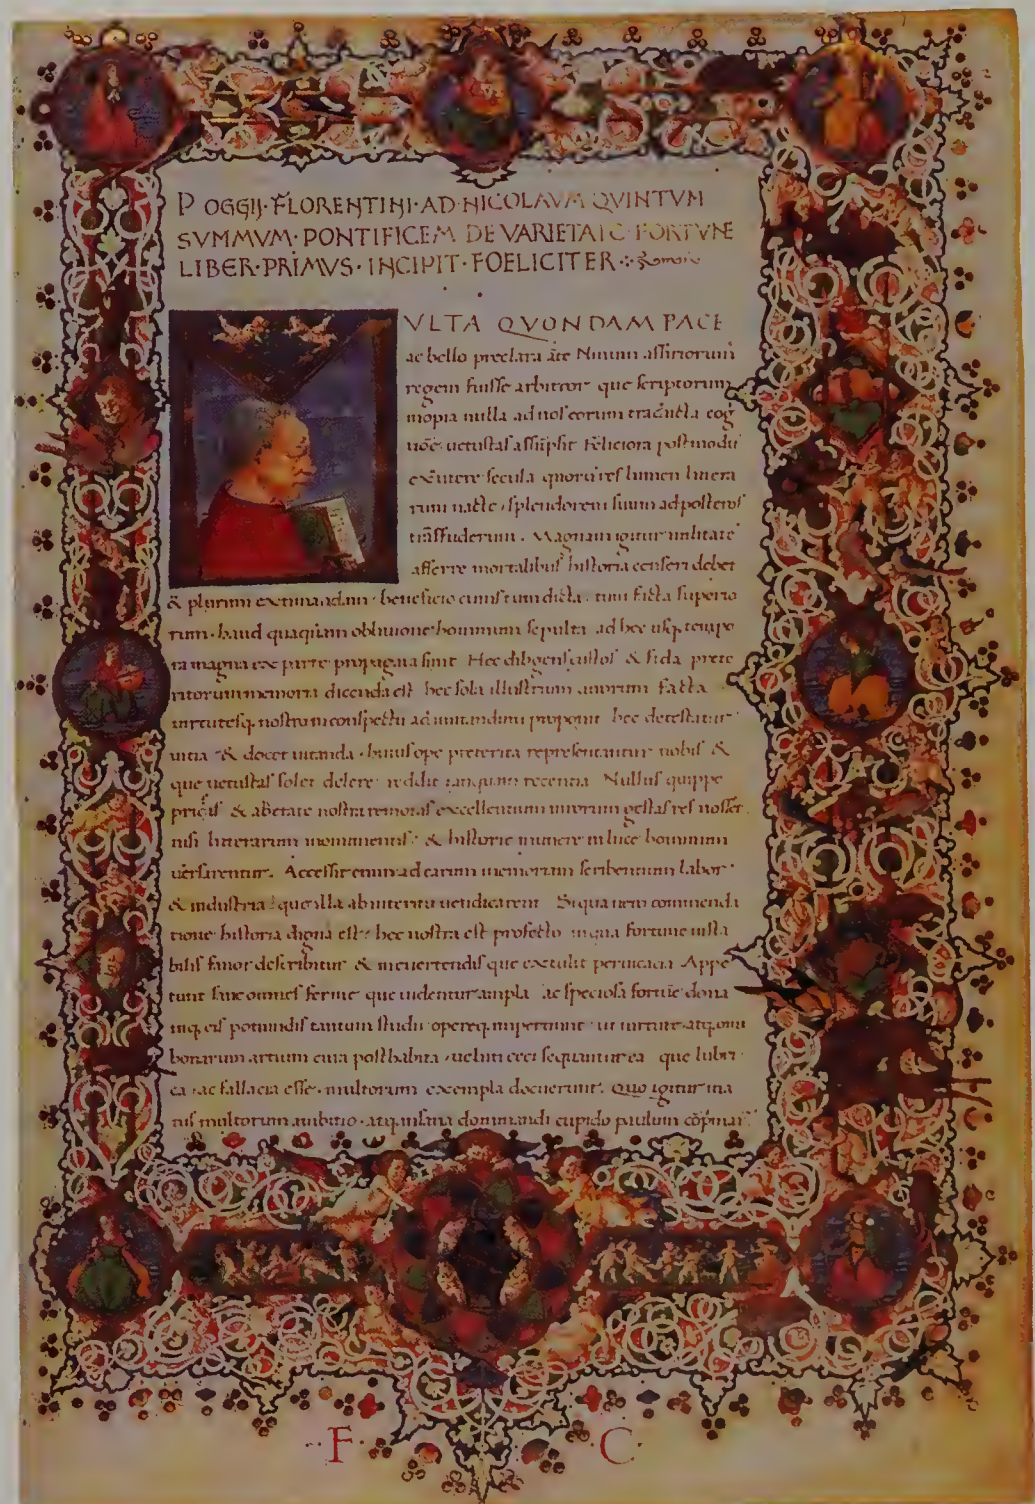 POGGIJ·FLORENTINI·AD·NICOLAVM QVINTVM
SVMMVM·PONTIFICEM DE VARIETATE FORTVNE
LIBER·PRIMVS·INCIPIT·FOELICITER
VLTA QVONDAM PACE
ac bello preclara āte Ninum assiriorum
regem fuisse arbitror que scriptorum
inopia nulla ad nos eorum traducta cog
uetustas assūpsit Feliciora postmodū
secula quorū res lumen littera
rum splendorem suum ad posteros
trāsfuderunt. Magnam igitur utilitatē
afferre mortalibus historia censeri debet
& plurimi beneficio cum dicta. tum facta superio
rum. haud quaquam obliuione hominum sepulta ad hec usq, tempo
ra magna ex parte propagata sint Hec diligens custos & fida prete
ritorum memoria dicenda est hec sola illustrium uirorum facta
uirtutesq, nostro in conspectu ad imitandum proponit hec detestatur
uitia & docet uitanda. huius ope preterita representantur nobis &
que uetustas solet delere reddit tanquam recentia Nullus quippe
priscas & ab etate nostra remotas excellentium uirorum gestas res nosset
nisi litterarum monumentis & historie munere in luce hominum
uersarentur. Accessit enim ad earum memoriam scribentium labor
& industria que illa ab interitu uendicarent Siqua uero commenda
tione historia digna est hec nostra est profecto in qua fortune insta
bilis fauor describitur & in euertendis que extulit peruicacia Appe
tunt sane omnes ferme que uidentur ampla ac speciosa fortūe dona
inq, eis potiundis tantum studii opereq, impertiunt ut uirtute atq, omi
bonarum artium cura posthabita ueluti ceci sequantur ea que lubri
ca ac fallacia esse multorum exempla docuerunt. Quo igitur ina
nis multorum ambitio atq, insana dominandi cupido paulum
F C